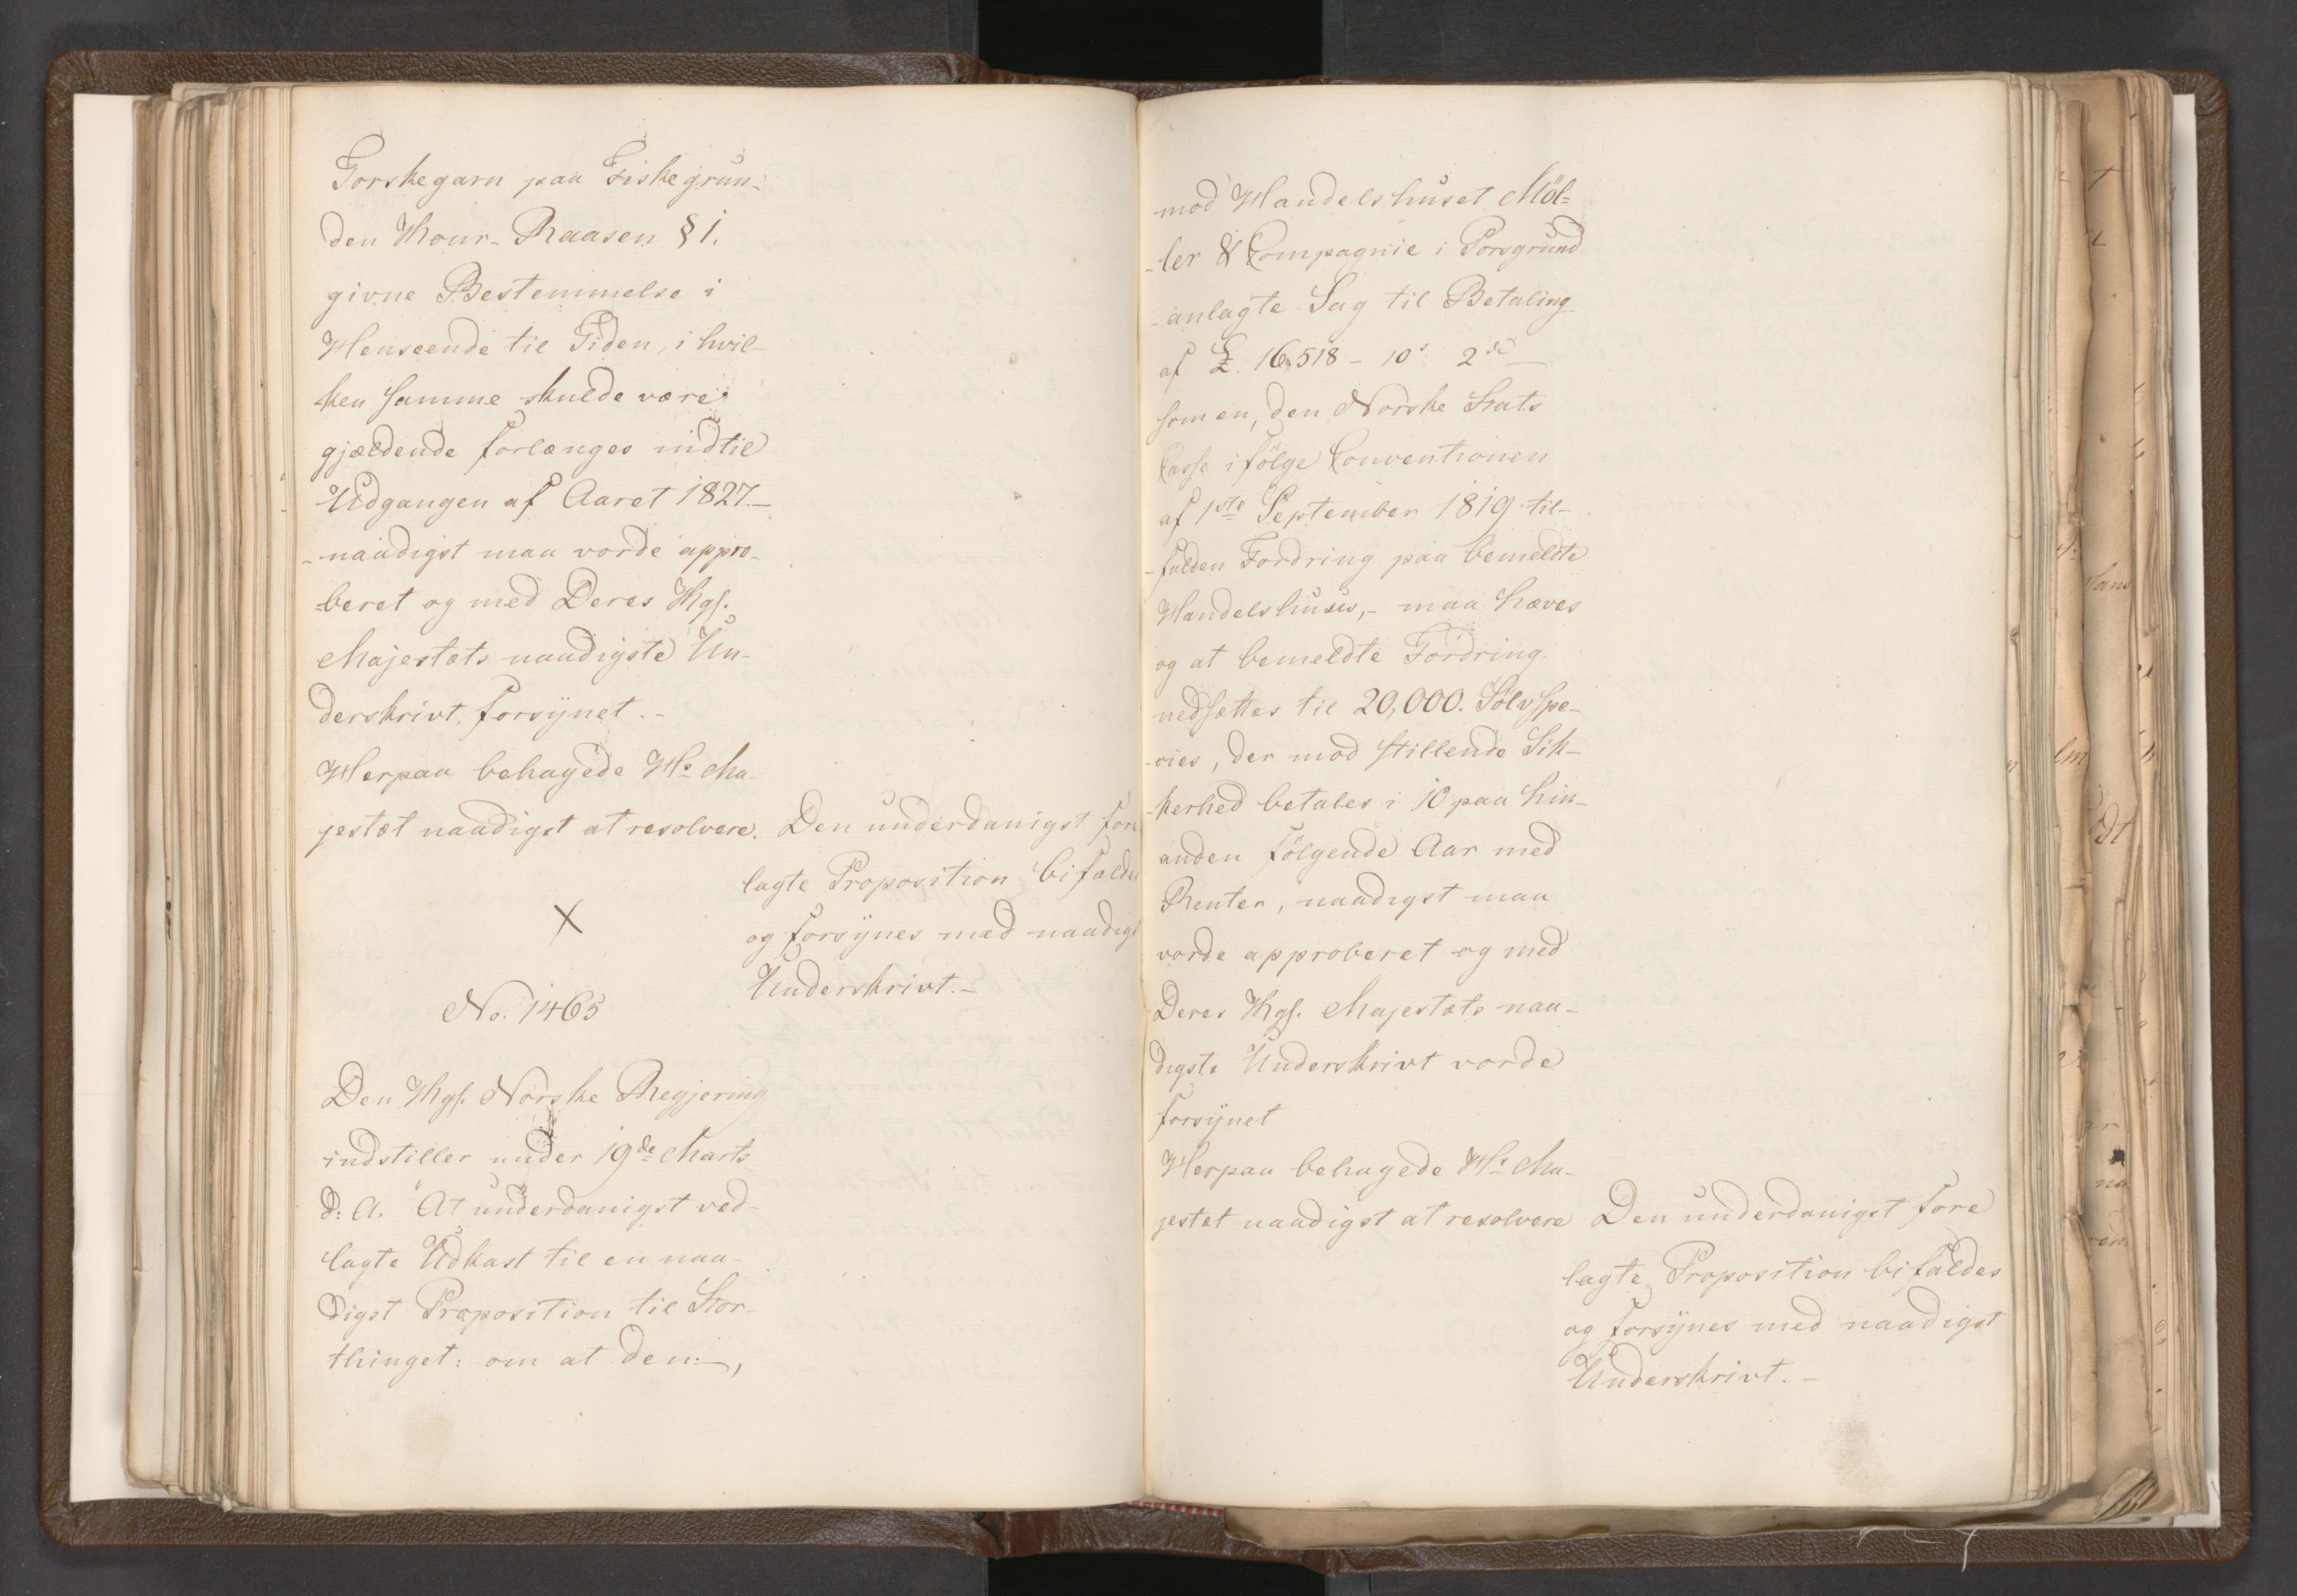 Torskegarn paa Fiskegrun-
den Thour-Raasen § 1.
givne Bestemmelse i
Henseende til Tiden, i hvil-
ken samme skulde være
gjældende forlænges indtil
Udgangen af Aaret 1827.-
-naadigst maa vorde appro-
-beret og med Deres Kgl.
Majestæts naadigste Un-
derskrivt, forsÿnet.-
Herpaa behagede Hs Ma-
jestæt naadigst at resolvere. Den underdanigst fore
lagte Proposition bifaldes
og forsÿnes med naadigst
Underskrivt.-
X
No. 1465
Den Kgl. Norske Regjering
indstiller under 19de Marts
d: A. "At underdanigst ved-
lagte Udkast til en naa-
digst Proposition til Stor-
thinget: om at den -,
mod Handelshuset Möl=
-ler & Compagnie i Porsgrund
-anlagte Sag til Betaling
af £. 16,518 - 10s 2d -
som en, den Norske Stats
Casse ifölge Conventionen
af 1ste September 1819 til-
-falden Fordring paa bemeldte
Handelshuus,- maa hæves
og at bemeldte Fordring
nedsættes til 20,000. SölvSpe-
-cies, der mod stillende Sik-
-kerhed betales i 10 paa hin-
anden fölgende Aar med
Renter, naadigst maa
vorde approberet og med
Deres Kgl. Majestæts naa-
digste Underskrivt vorde
forsÿnet
Herpaa behagede Hs Ma-
jestæt naadigst at resolvere Den underdanigst fore
lagte Proposition bifaldes
og forsÿnes med naadigst
Underskrivt.-